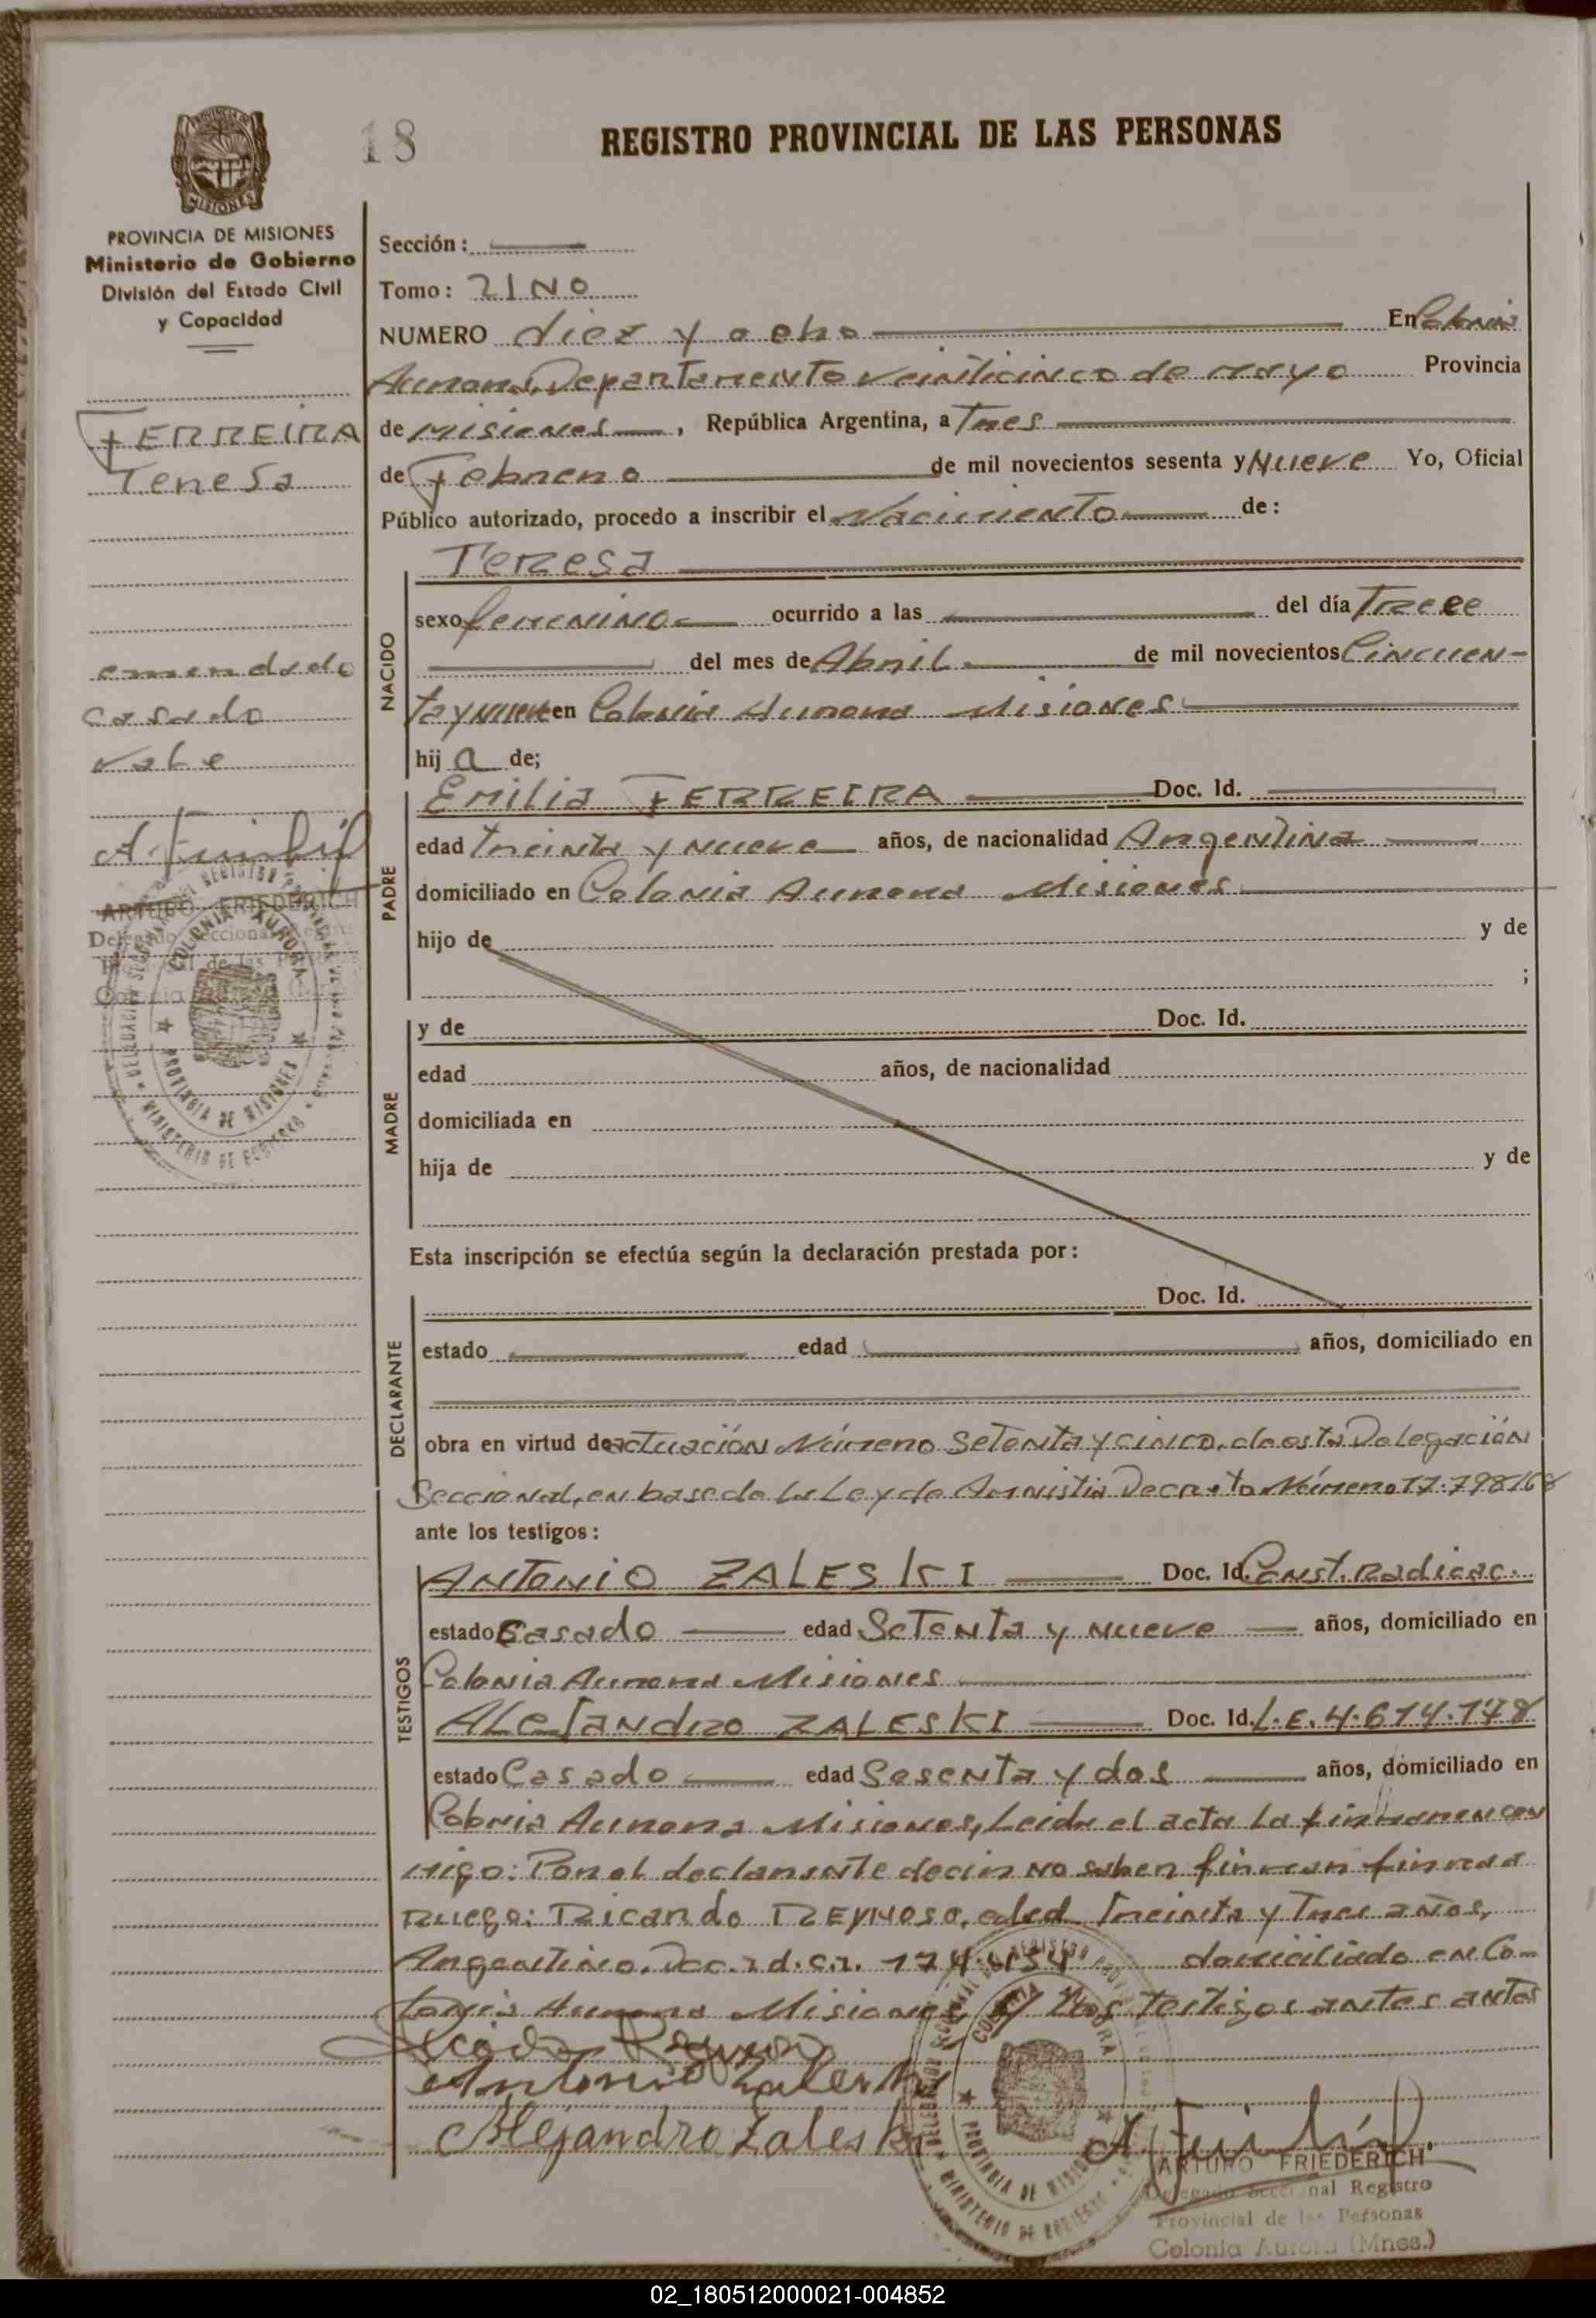 18
REGISTRO PROVINCIAL DE LAS PERSONAS
MISIONES
PROVINCIA DE MISIONES
Ministerio de Gobierno
División del Estado Civil
y Capacidad
FERREIRA
Teresa
emendado
casado
vale
ARTURO FRIEDERICH
COLONIA AURORA
PROVINCIA DE MISIONES
Sección:
Tomo: UNO
NUMERO diez y ocho En Colonia
Aurora, Departamento veinticinco de mayo Provincia
de Misiones, República Argentina, a Tres
de Febrero de mil novecientos sesenta y Nueve Yo, Oficial
Público autorizado, procedo a inscribir el Nacimiento de:
NACIDO
Teresa
sexo femenino ocurrido a las del día Trece
del mes de Abril de mil novecientos Cincuen-
ta y nueve en Colonia Aurora Misiones
hij a de;
PADRE
Emilia FERREIRA Doc. Id.
edad treinta y nueve años, de nacionalidad Argentina
domiciliado en Colonia Aurora Misiones
hijo de y de
;
MADRE
y de Doc. Id.
edad años, de nacionalidad
domiciliada en
hija de y de
Esta inscripción se efectúa según la declaración prestada por:
DECLARANTE
Doc. Id.
estado edad años, domiciliado en
obra en virtud de actuación Número Setenta y cinco, de esta Delegación
Seccional, en base de la Ley de Amnistia Decreto Número 17.798/68
ante los testigos:
TESTIGOS
ANTONIO ZALESKI Doc. Id. Const. Radicac.
estado Casado edad Setenta y nueve años, domiciliado en
Colonia Aurora Misiones
Alejandro ZALESKI Doc. Id. L.E. 4.614.178
estado Casado edad Sesenta y dos años, domiciliado en
Colonia Aurora Misiones, Leida el acta la firmaron con
migo: Por el declarante decir no saben firman firma a
Ruego: Ricardo REYNOSO, edad treinta y Tres años,
Argentino. Doc. domiciliado en Co-
lonia Aurora Misiones y Los testigos antes antes
Antonio Zaleski
Alejandro Zaleski
COLONIA AURORA
PROVINCIA DE MISIONES
MINISTERIO DE GOBIERNO
ARTURO FRIEDERICH
Delegado Seccional Registro
Provincial de las Personas
Colonia Aurora (Mnes.)
02_180512000021-004852